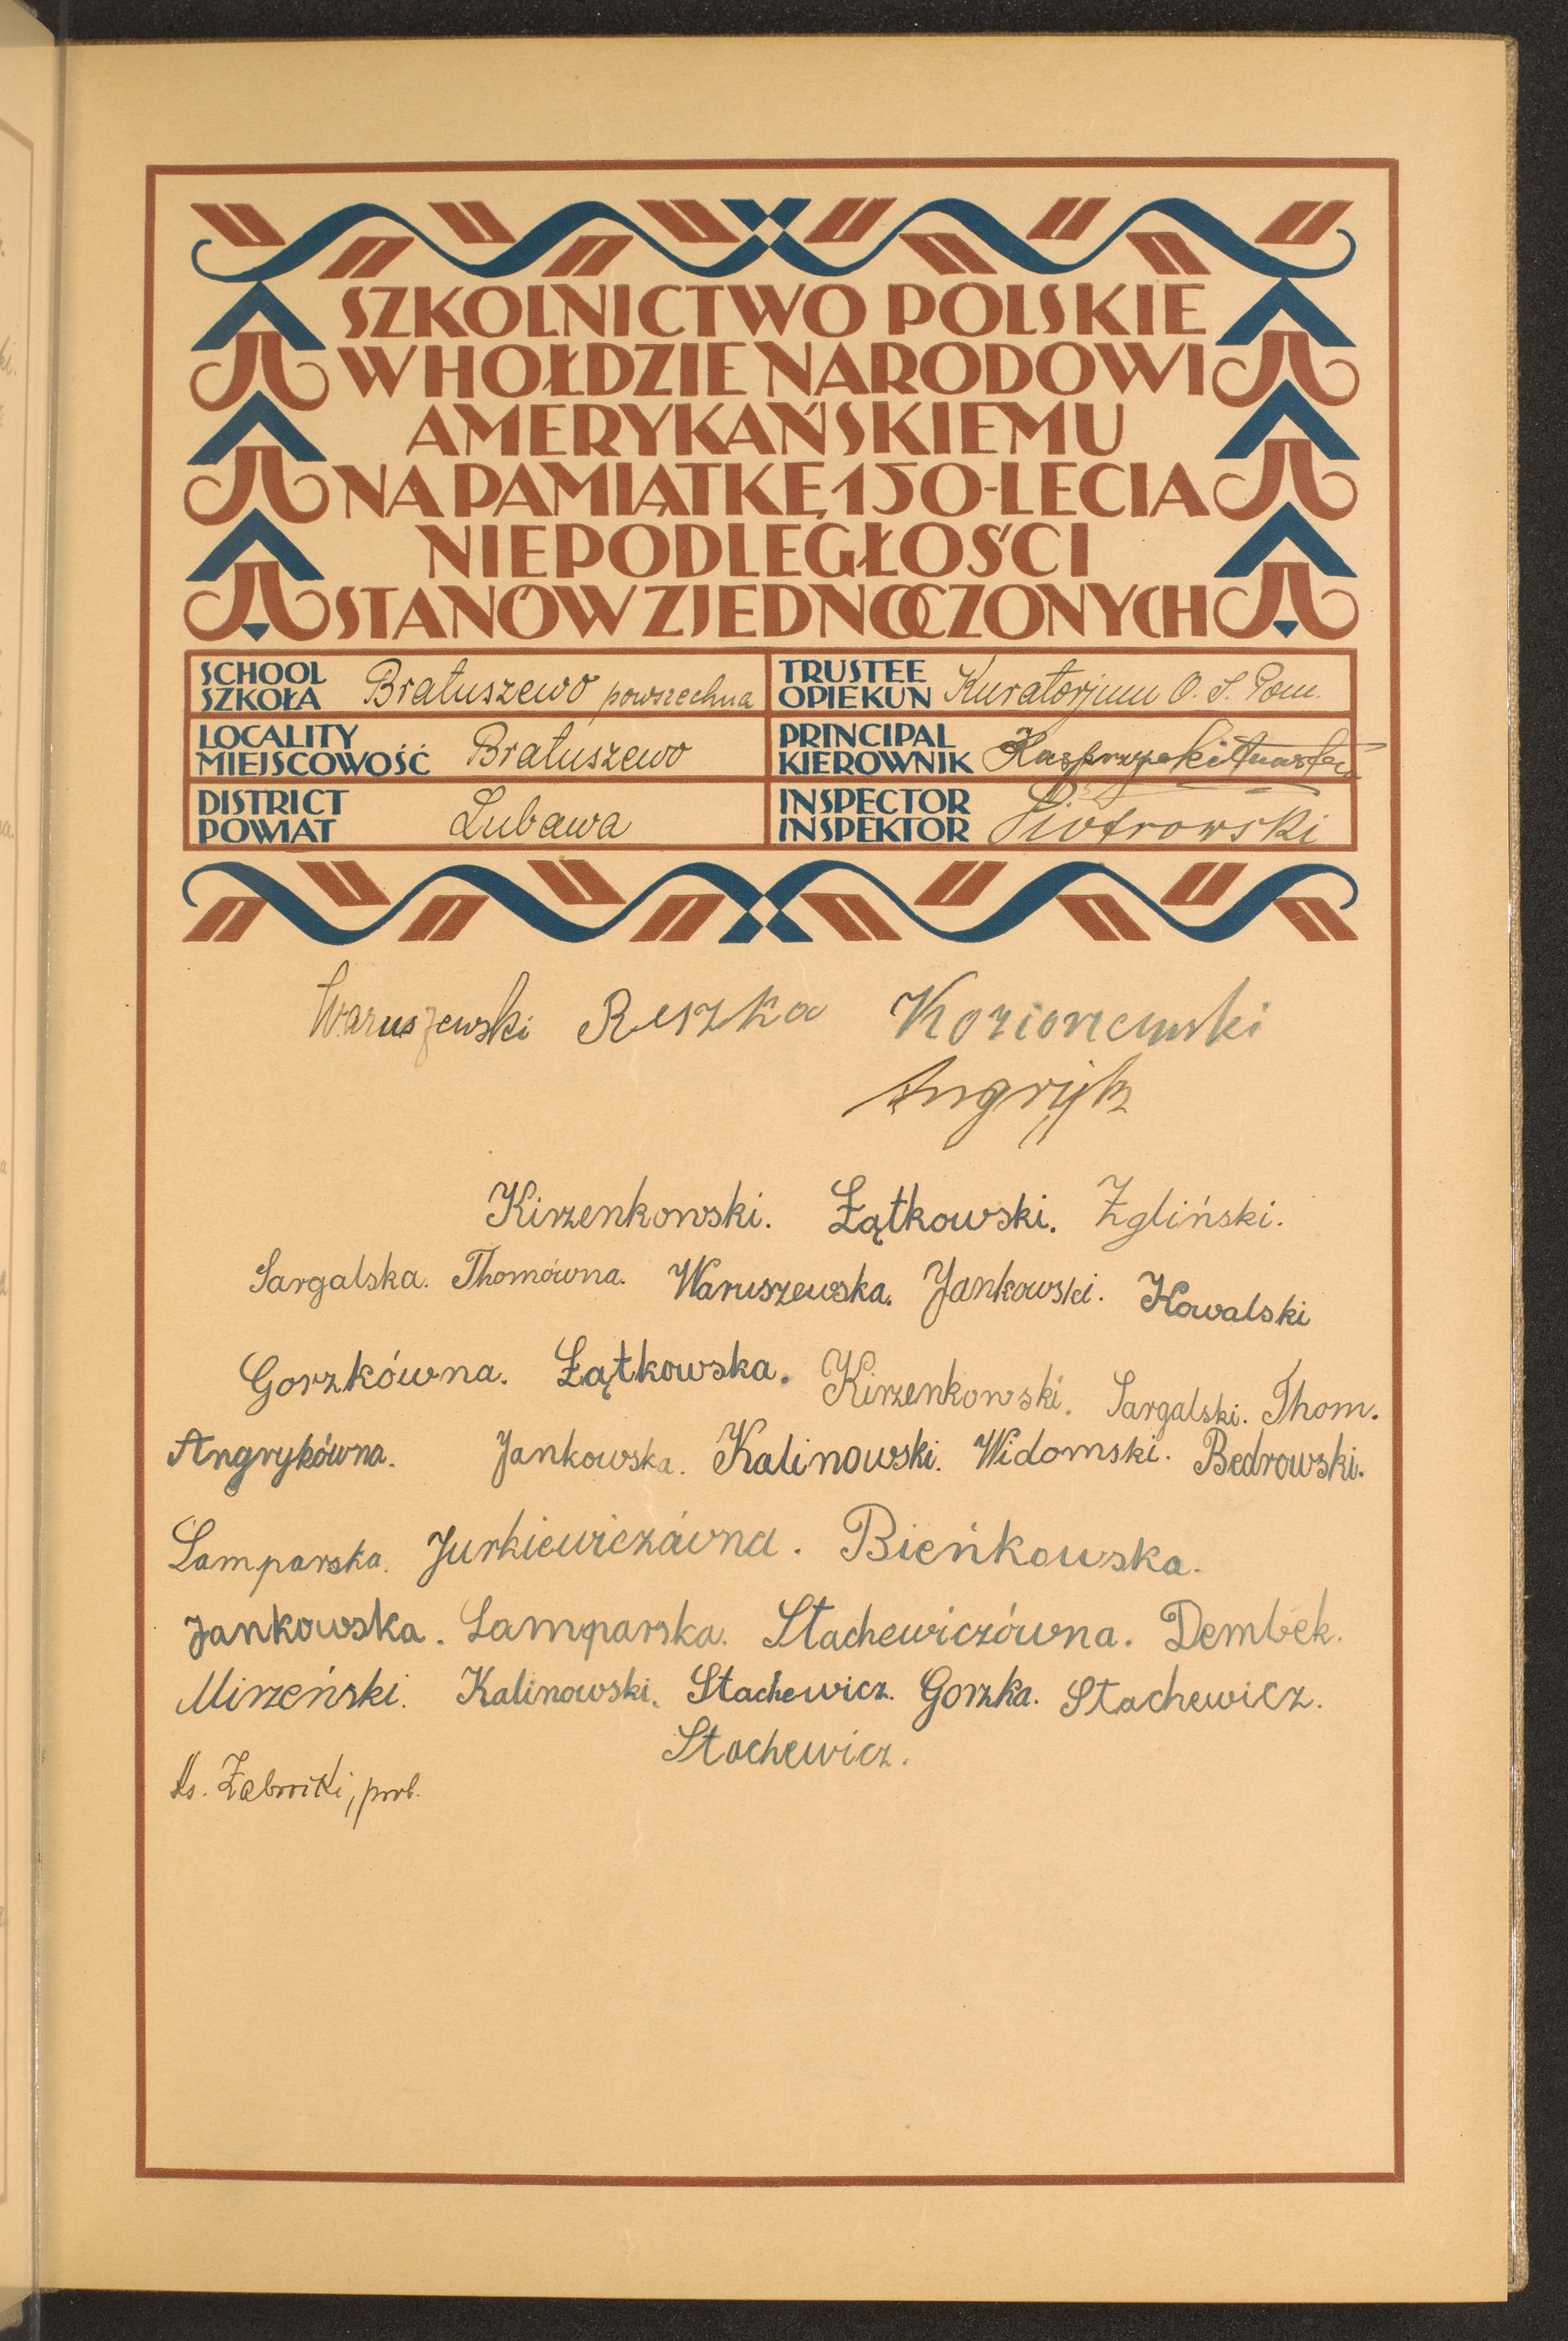 SZKOLNICTWO POLSKIE
W HOŁDZIE NARODOWI
AMERYKAŃSKIEMU
NA PAMIĄTKĘ 150-LECIA
NIEPODLEGŁOŚCI
STANÓW ZJEDNOCZONYCH
SCHOOL
SZKOŁA Bratuszewo powszechna
TRUSTEE
OPIEKUN Kuratorjum O. S. Pom.
LOCALITY
MIEJSCOWOŚĆ Bratuszewo
PRINCIPAL
KIEROWNIK Kasprzycki
DISTRICT
POWIAT Lubawa
INSPECTOR
INSPEKTOR Piotrowski
Waruszewski Reszka Kozionewski
Angryk
Kirzenkowski. Łątkowski. Zgliński.
Sargalska. Thomówna. Waruszewska. Jankowski. Kowalski
Gorzkówna. Łątkowska. Kirzenkowski. Sargalski. Thom.
Angrykówna. Jankowska. Kalinowski. Widomski. Bedrowski.
Lamparska. Jurkiewiczówna. Bieńkowska.
Jankowska. Lamparska. Stachewiczówna. Dembek.
Mirzeński. Kalinowski. Stachewicz. Gorzka. Stachewicz.
Stachewicz.
Ks. prob.